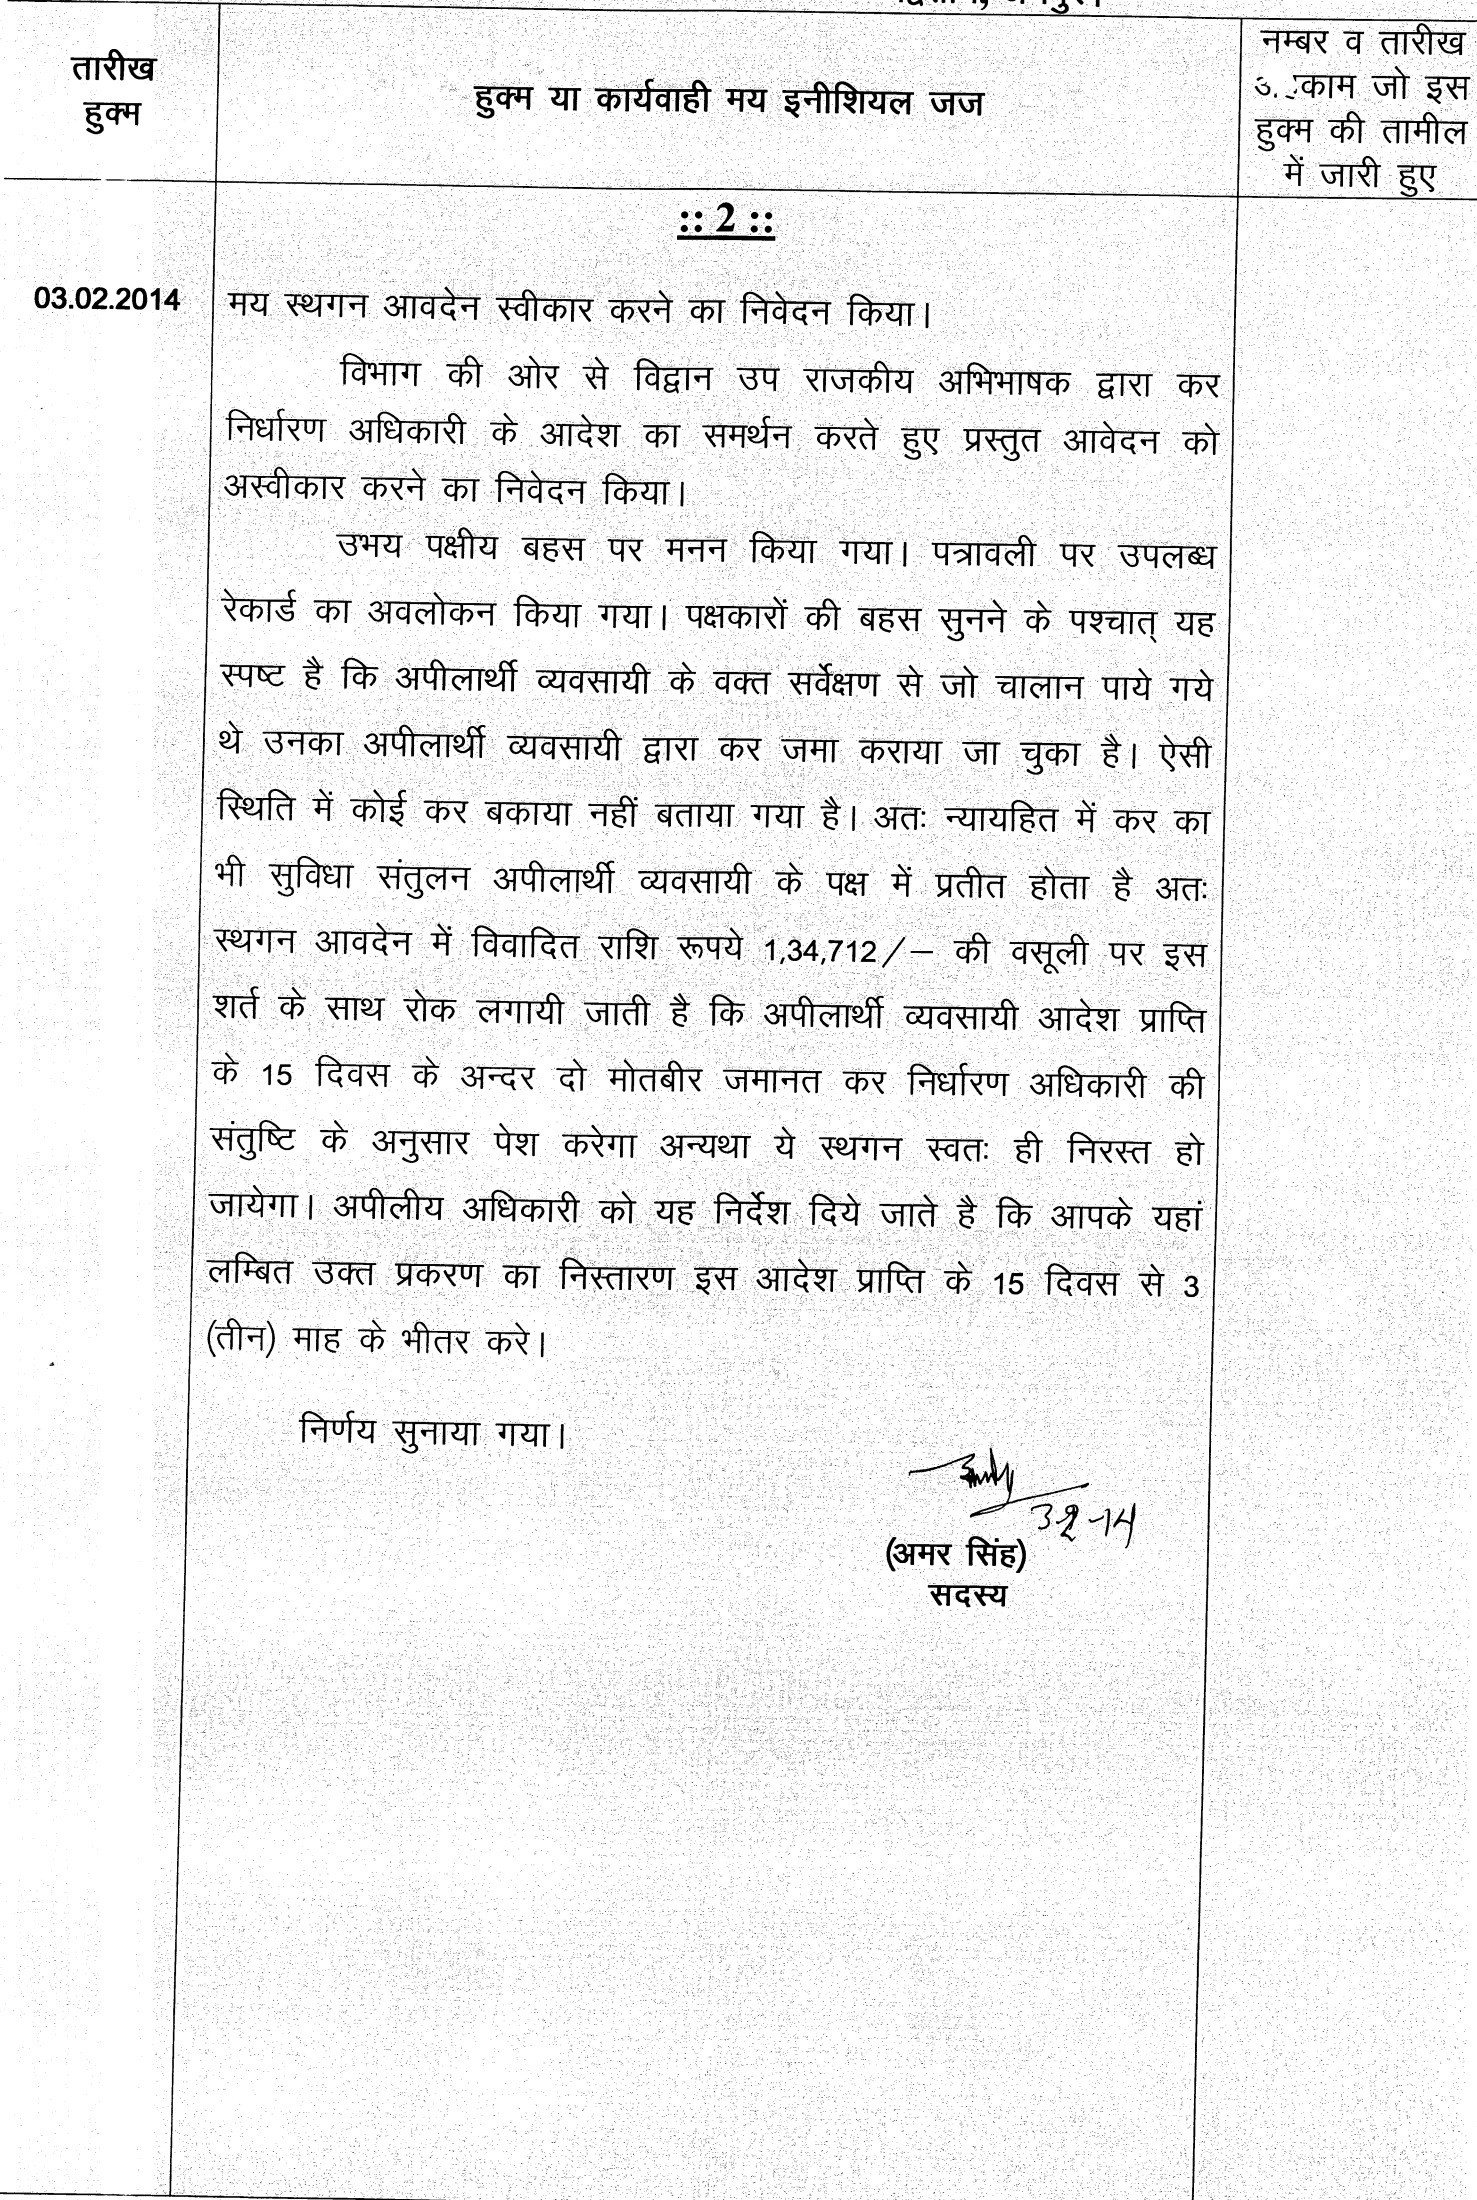 तारीख
हुक्म
हुक्म या कार्यवाही मय इनीशियल जज
नम्बर व तारीख
जो इस
हुक्म की तामील
में जारी हुए
:: 2 ::
03.02.2014
मय स्थगन आवदेन स्वीकार करने का निवेदन किया।
विभाग की ओर से विद्वान उप राजकीय अभिभाषक द्वारा कर
निर्धारण अधिकारी के आदेश का समर्थन करते हुए प्रस्तुत आवेदन को
अस्वीकार करने का निवेदन किया।
उभय पक्षीय बहस पर मनन किया गया। पत्रावली पर उपलब्ध
रेकार्ड का अवलोकन किया गया। पक्षकारों की बहस सुनने के पश्चात् यह
स्पष्ट है कि अपीलार्थी व्यवसायी के वक्त सर्वेक्षण से जो चालान पाये गये
थे उनका अपीलार्थी व्यवसायी द्वारा कर जमा कराया जा चुका है। ऐसी
स्थिति में कोई कर बकाया नहीं बताया गया है। अतः न्यायहित में कर का
भी सुविधा संतुलन अपीलार्थी व्यवसायी के पक्ष में प्रतीत होता है अतः
स्थगन आवदेन में विवादित राशि रूपये 1,34,712/– की वसूली पर इस
शर्त के साथ रोक लगायी जाती है कि अपीलार्थी व्यवसायी आदेश प्राप्ति
के 15 दिवस के अन्दर दो मोतबीर जमानत कर निर्धारण अधिकारी की
संतुष्टि के अनुसार पेश करेगा अन्यथा ये स्थगन स्वतः ही निरस्त हो
जायेगा। अपीलीय अधिकारी को यह निर्देश दिये जाते है कि आपके यहां
लम्बित उक्त प्रकरण का निस्तारण इस आदेश प्राप्ति के 15 दिवस से 3
(तीन) माह के भीतर करे।
निर्णय सुनाया गया।
3-2-14
(अमर सिंह)
सदस्य